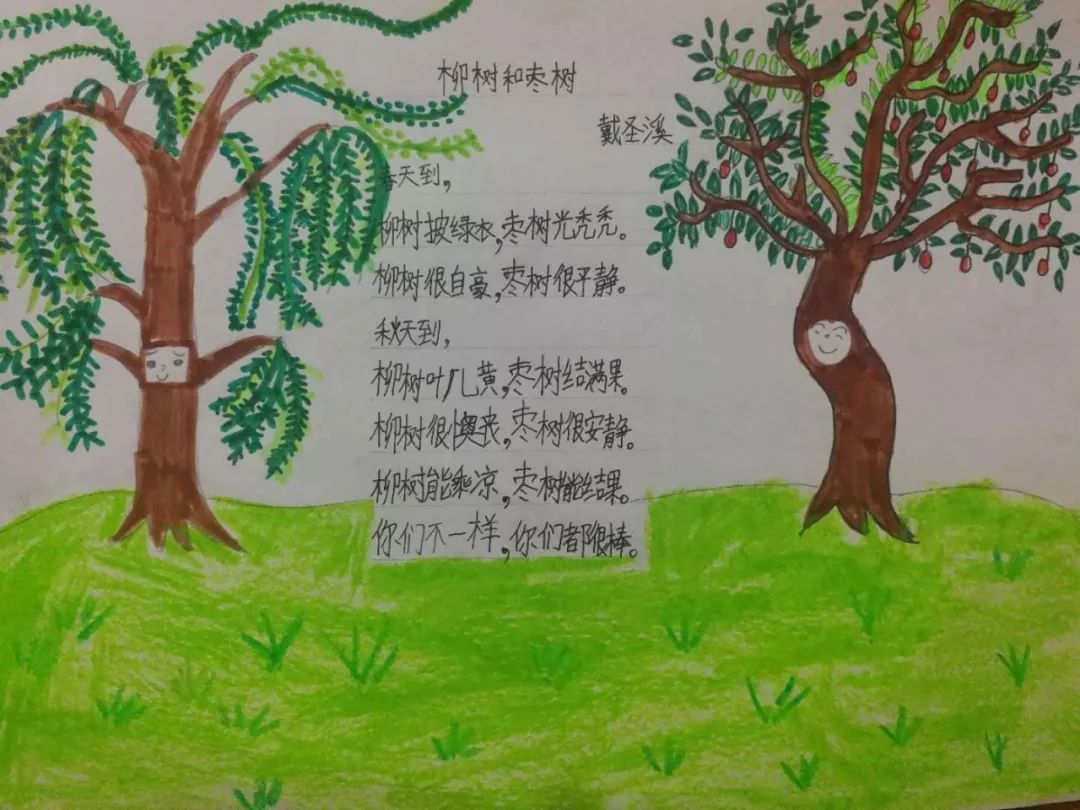 柳树和枣树
戴圣溪
春天到，
柳树披绿衣，枣树光秃秃。
柳树很自豪，枣树很平静。
秋天到，
柳树叶儿黄，枣树结满果。
柳树很懊丧，枣树很安静。
柳树能乘凉，枣树能结果。
你们不一样，你们都很棒。